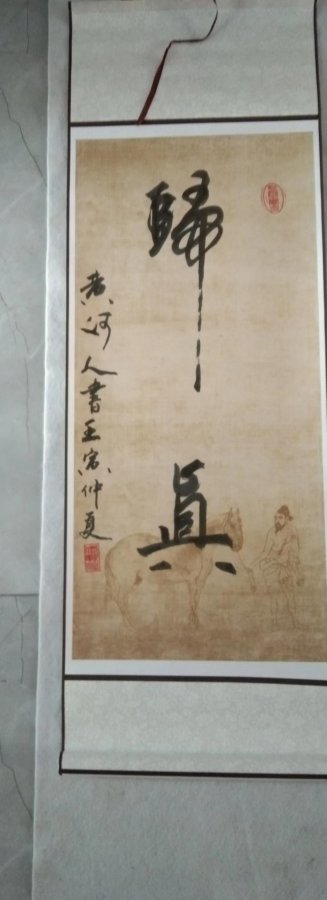 歸真
黄河人書壬寅仲夏